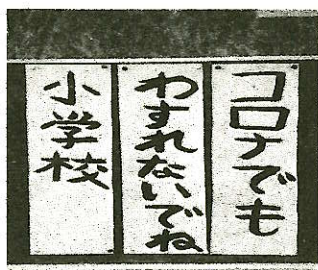 コロナでも
わすれないでね
小学校